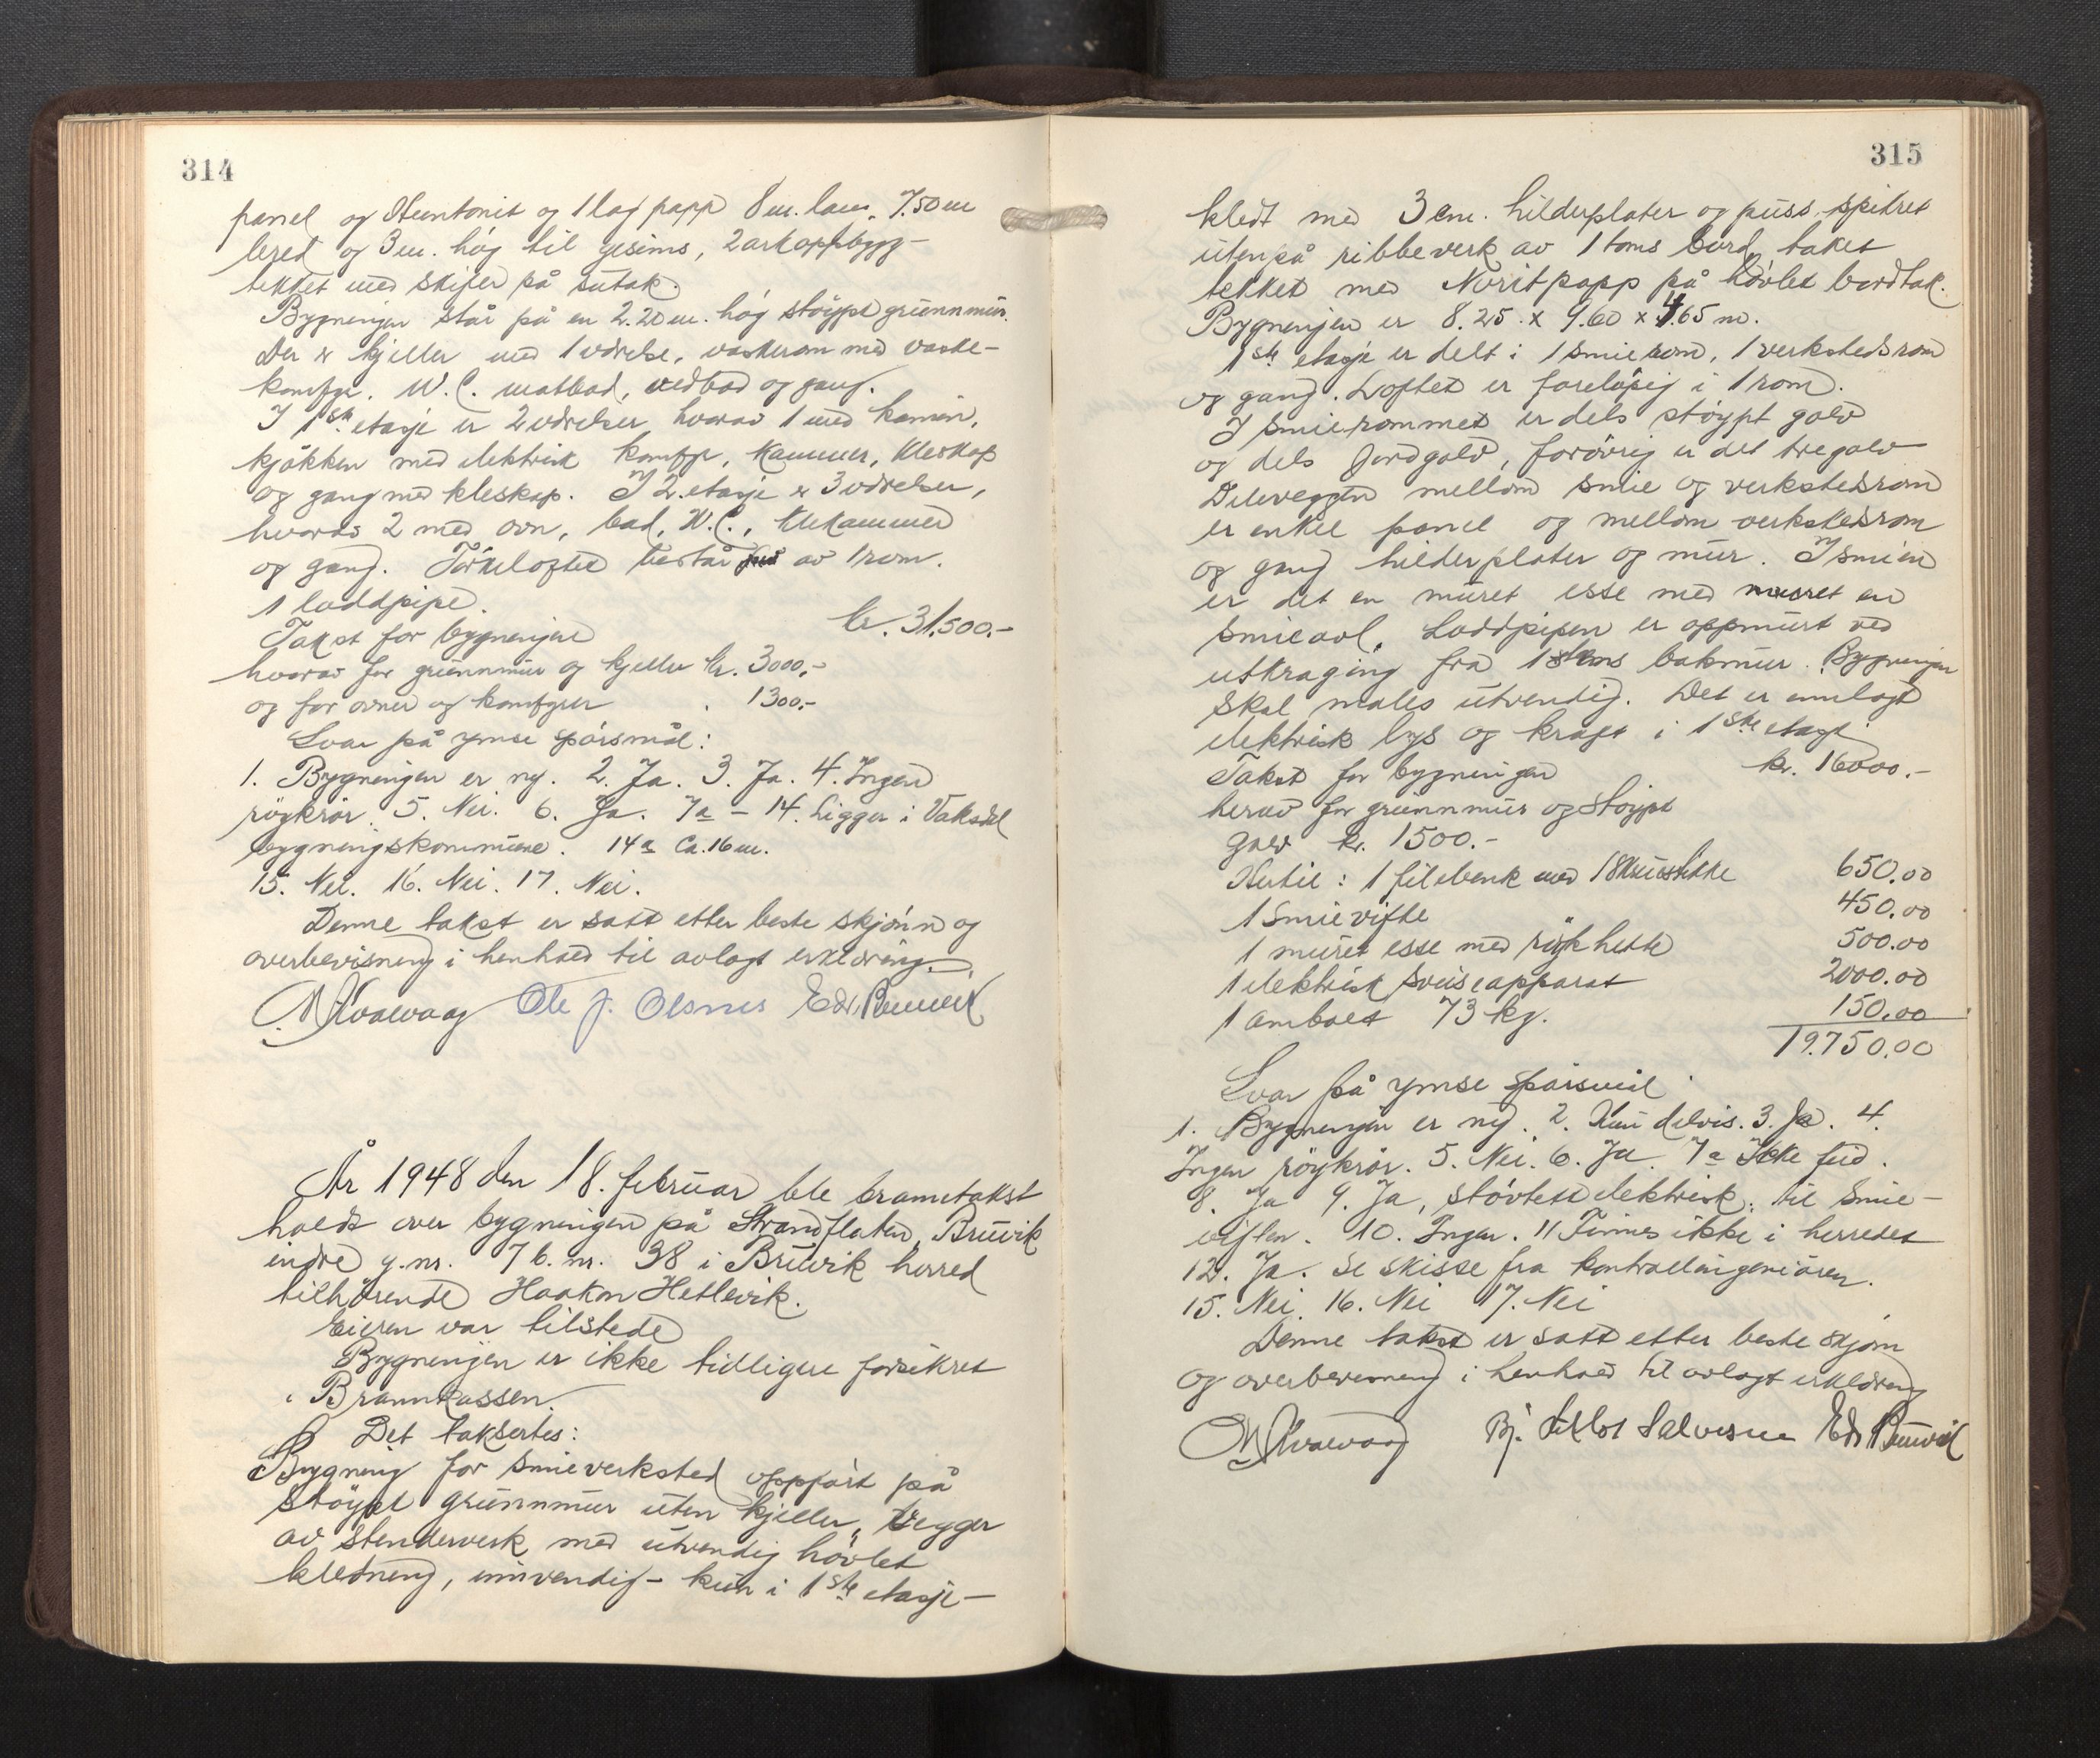 314
panel og Huntonit og 1 lag papp 8 m. lang, 7.50 m
bred og 3 m. høg til gesims, 2 arkoppbygg-
tekket med skifer på sutak.
Bygningen står på en 2.20 m. høg støypt grunnmur.
Der er kjeller med 1 værelse, vaskerom med vaske-
komfyr, W.C. matbod, vedbod og gang.
I 1ste etasje er 2 værelser hvorav 1 med kamin,
kjøkken med elektrisk komfyr, kammer, kleskap
og gang med kleskap. I 2. etasje er 3 værelser,
hvorav 2 med ovn, bad, W.C., klekammer
og gang. Tørkeloftet består av 1 rom.
1 loddpipe.
Takst for bygningen kr. 31.500.-
hvorav for grunnmur og kjeller kr. 3000.-
og for ovner og komfyrer " 1300.-
Svar på ymse spørsmål:
1. Bygningen er ny. 2. Ja. 3. Ja. 4. Ingen
røykrør. 5. Nei. 6. Ja. 7a - 14. Ligger i Vaksdal
bygningskommune. 14a Ca. 16 m.
15. Nei. 16. Nei. 17. Nei.
Denne takst er satt etter beste skjønn og
overbevisning i henhold til avlagt erklæring.
Ole J. Olsnes Edv. Bruvik
År 1948 den 18. februar ble branntakst
holdt over bygningen på Strandflaten, Bruvik
indre g.nr. 7 b.nr. 38 i Bruvik herred
tilhørende Haakon Hetlevik.
Eieren var tilstede
Bygningen er ikke tidligere forsikret
i Brannkassen.
Det taksertes:
Bygning for smieverksted oppført på
støypt grunnmur uten kjeller, vegger
av stenderverk med utvendig høvlet
kledning, innvendig - kun i 1ste etasje -
315
kledt med 3 cm. hilderplater og puss, spikret
utenpå ribbeverk av 1 toms bord, taket
tekket med Noritpapp på høvlet bordtak.
Bygningen er 8.25 x 9.60 x 4.65 m.
1ste etasje er delt i 1 smierom, 1 verkstedsrom
og gang. Loftet er foreløpig i 1 rom.
I smierommet er dels støypt golv
og dels jordgolv, forøvrig er det tregolv
Deleveggen mellom smie og verkstedsrom
er enkel panel og mellom verkstedsrom
og gang hilderplater og mur. I smien
er det en muret esse med muret en
smieavl. Loddpipen er oppmurt ved
utkraging fra 1 stens bakmur. Bygningen
skal males utvendig. Det er innlagt
elektrisk lys og kraft i 1ste etasje
Takst for bygningen kr. 16000.-
herav for grunnmur og støypt
golv kr. 1500.-
Hertil: 1 filebenk med 1 skruestikke 650.00
1 smievifte 450.00
1 muret esse med røykhette 500.00
1 elektrisk sveiseapparat 2000.00
1 ambolt 73 kg. 150.00
19.750.00
Svar på ymse spørsmål
1. Bygningen er ny. 2. Kun delvis. 3. Ja. 4.
Ingen røykrør. 5. Nei. 6. Ja. 7a Ikke feid.
8. Ja 9. Ja, støvtett elektrisk, til smie-
viften. 10. Ingen. 11 Finnes ikke i herredet
12. Ja. Se skisse fra kontrollingeniøren.
15. Nei. 16. Nei 17. Nei
Denne takst er satt etter beste skjønn
og overbevisning i henhold til avlagt erklæring
Salvesen Edv Bruvik